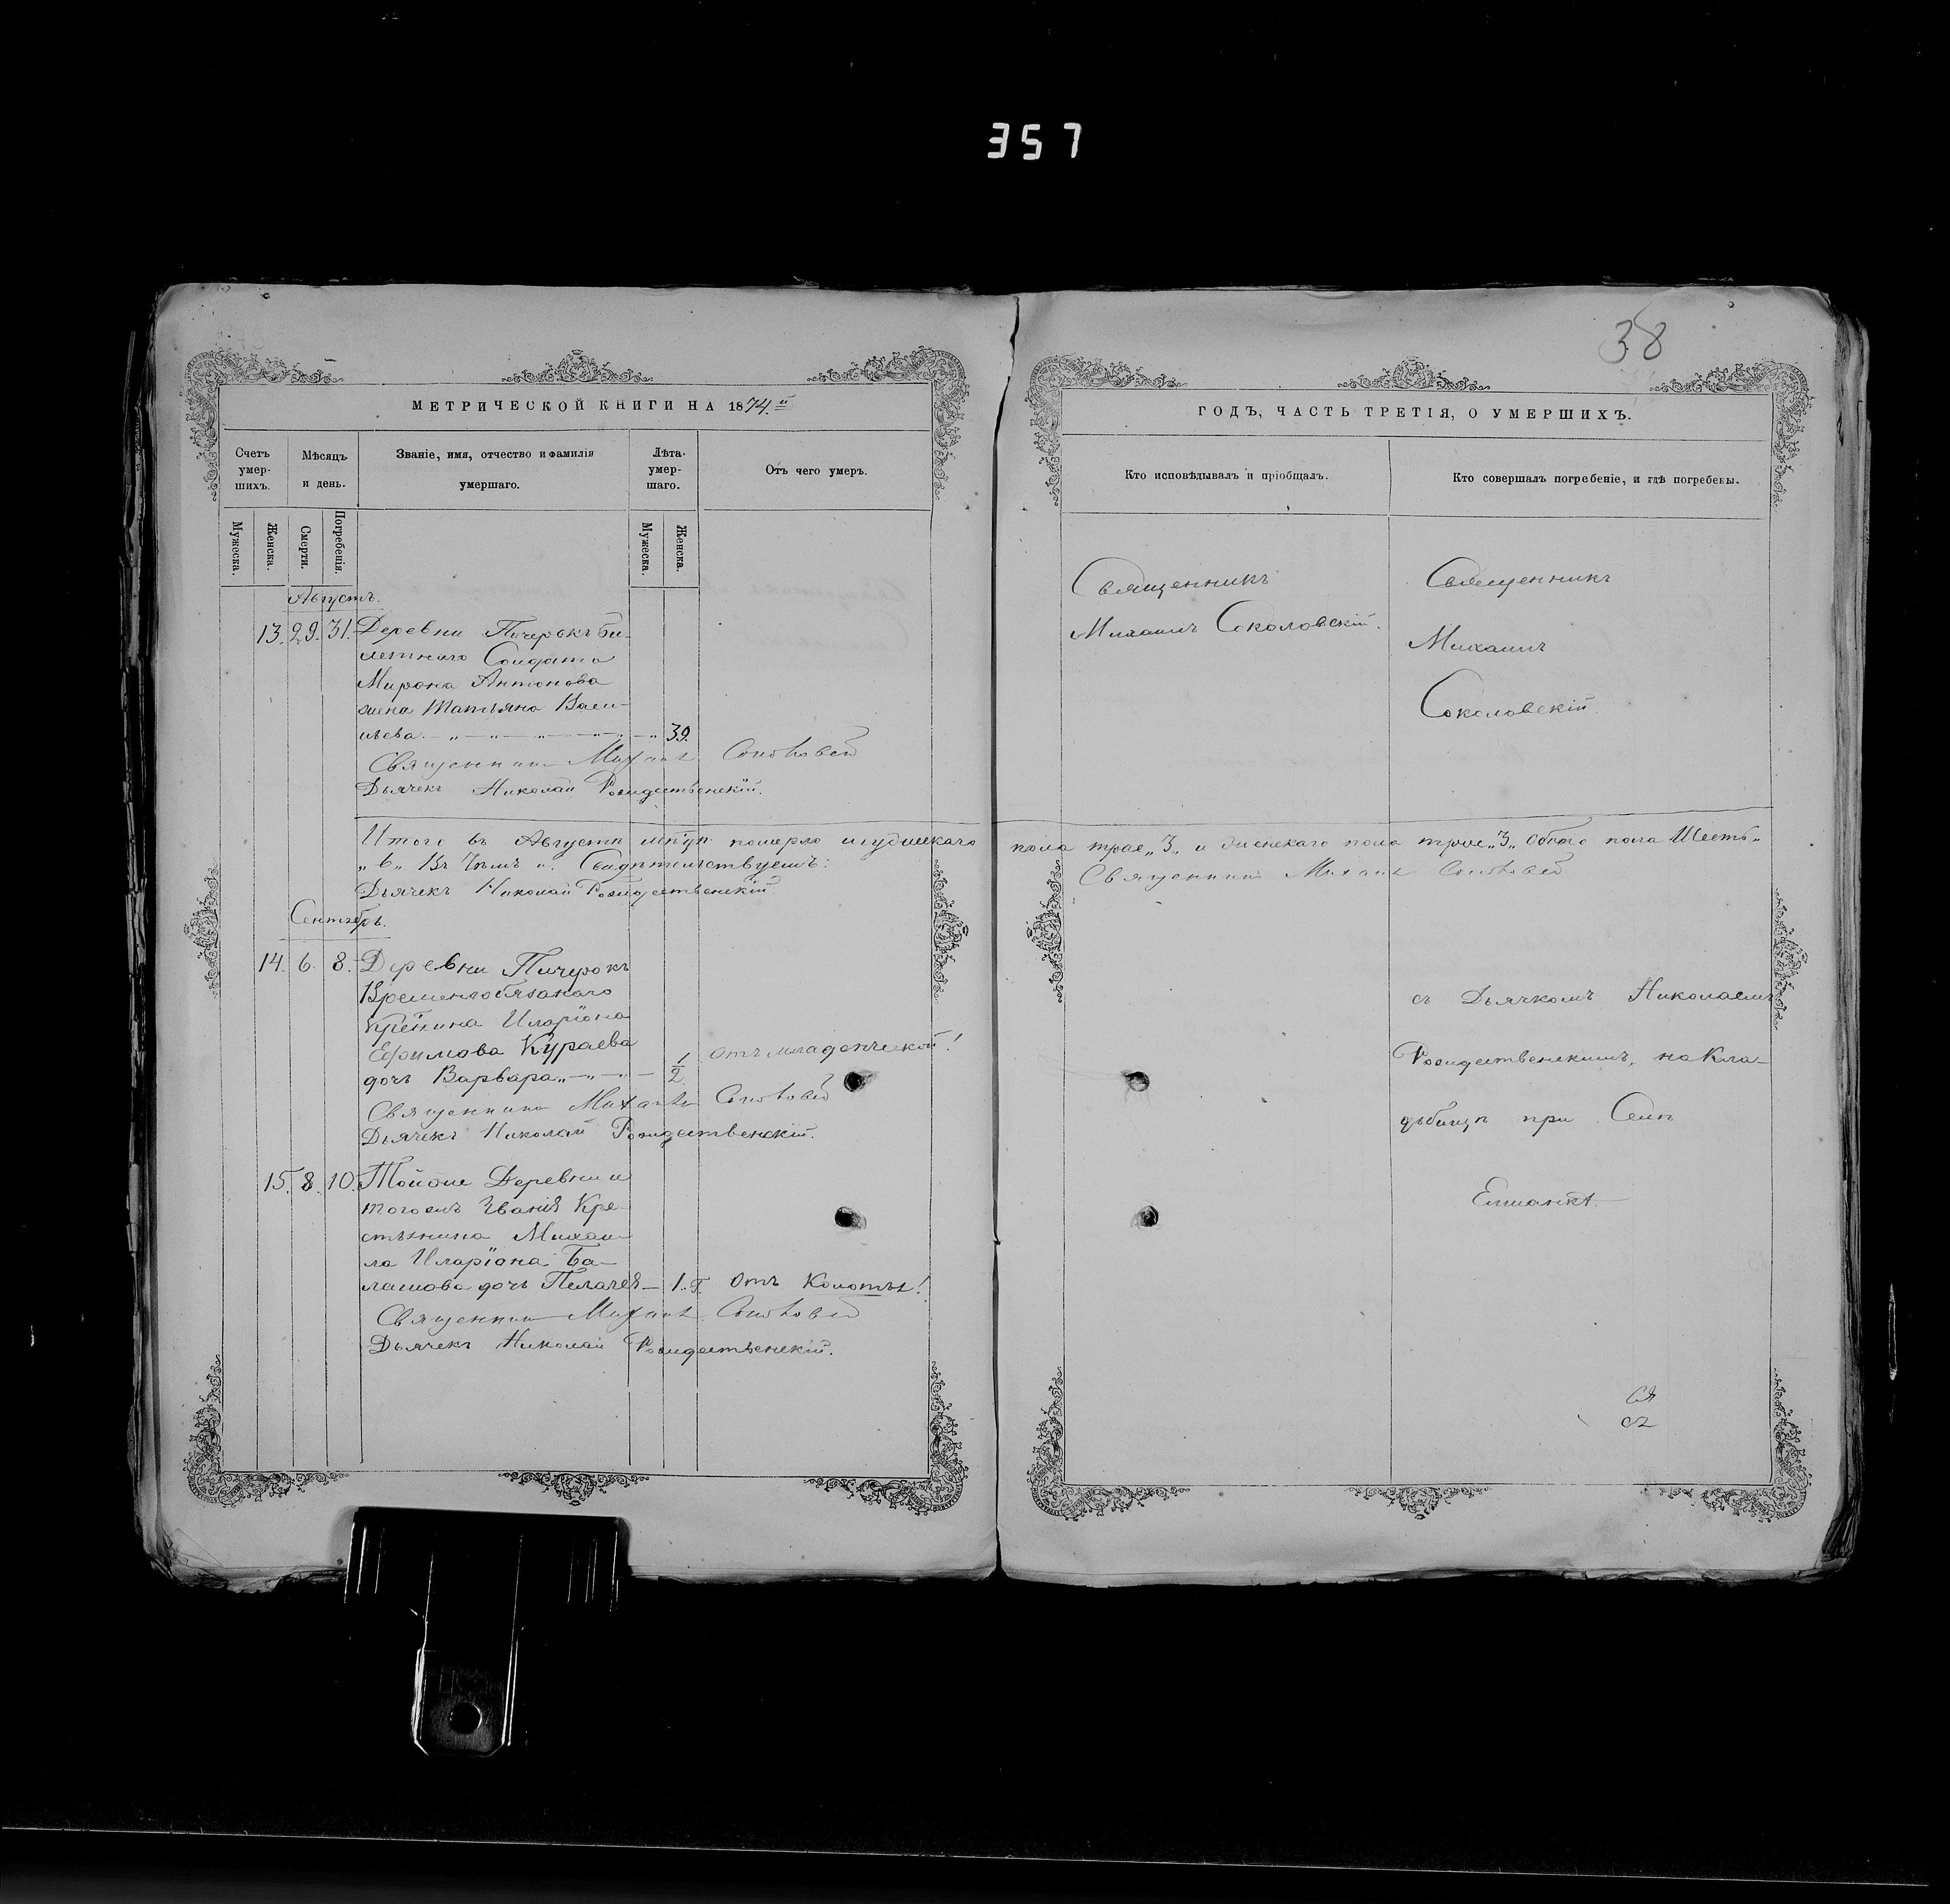 357
38
МЕТРИЧЕСКОЙ КНИГИ НА 1874й
ГОДЪ, ЧАСТЬ ТРЕТІЯ, О УМЕРШИХЪ.
Счетъ умер-шихъ.
Мѣсяцъ и день.
Званіе, имя, отчество и фамилія умершаго.
Лѣта умер-шаго.
Отъ чего умеръ.
Кто исповѣдывалъ и пріобщалъ.
Кто совершалъ погребеніе, и гдѣ погребены.
Мужеска.
Женска.
Смерти.
Погребенія.
Мужеска.
Женска.
Августъ.
13. 29. 31. Деревни Пичерокъ би-
летнаго Солдата
Мирона Антонова
жена Татьяна Васи-
льева 39.
Священникъ Михаилъ
Дьячекъ Николай Рождественскій.
Священникъ
Михаилъ Соколовскій.
Священникъ
Михаилъ
Соколовскій
Итого въ Августѣ померло мужескаго пола трое „3„ и женскаго пола трое „3„ обоего пола Шесть„
„6„ Въ чемъ и Свидѣтельствуемъ:
Священникъ Михаилъ
Дьячекъ Николай Рождественскій
Сентябрь.
14. 6. 8. Деревни Пичерокъ
Временнообязанаго
Кр-нина Иларіона
Ефимова Кураева
дочь Варвара 1/2 отъ младенческой!
Священникъ Михаилъ
Дьячекъ Николай Рождественскій.
15. 8. 10. Тойже Деревни и
тогожъ Званія Кре-
стьянина Михаи-
ла Иларіона Ба-
лашова дочь Пелагея 1.г. Отъ Колотья!
Священникъ Михаилъ
Дьячекъ Николай Рождественскій.
съ Дьячкомъ Николаемъ
Рождественскимъ, на Кла-
дбищѣ при Селѣ